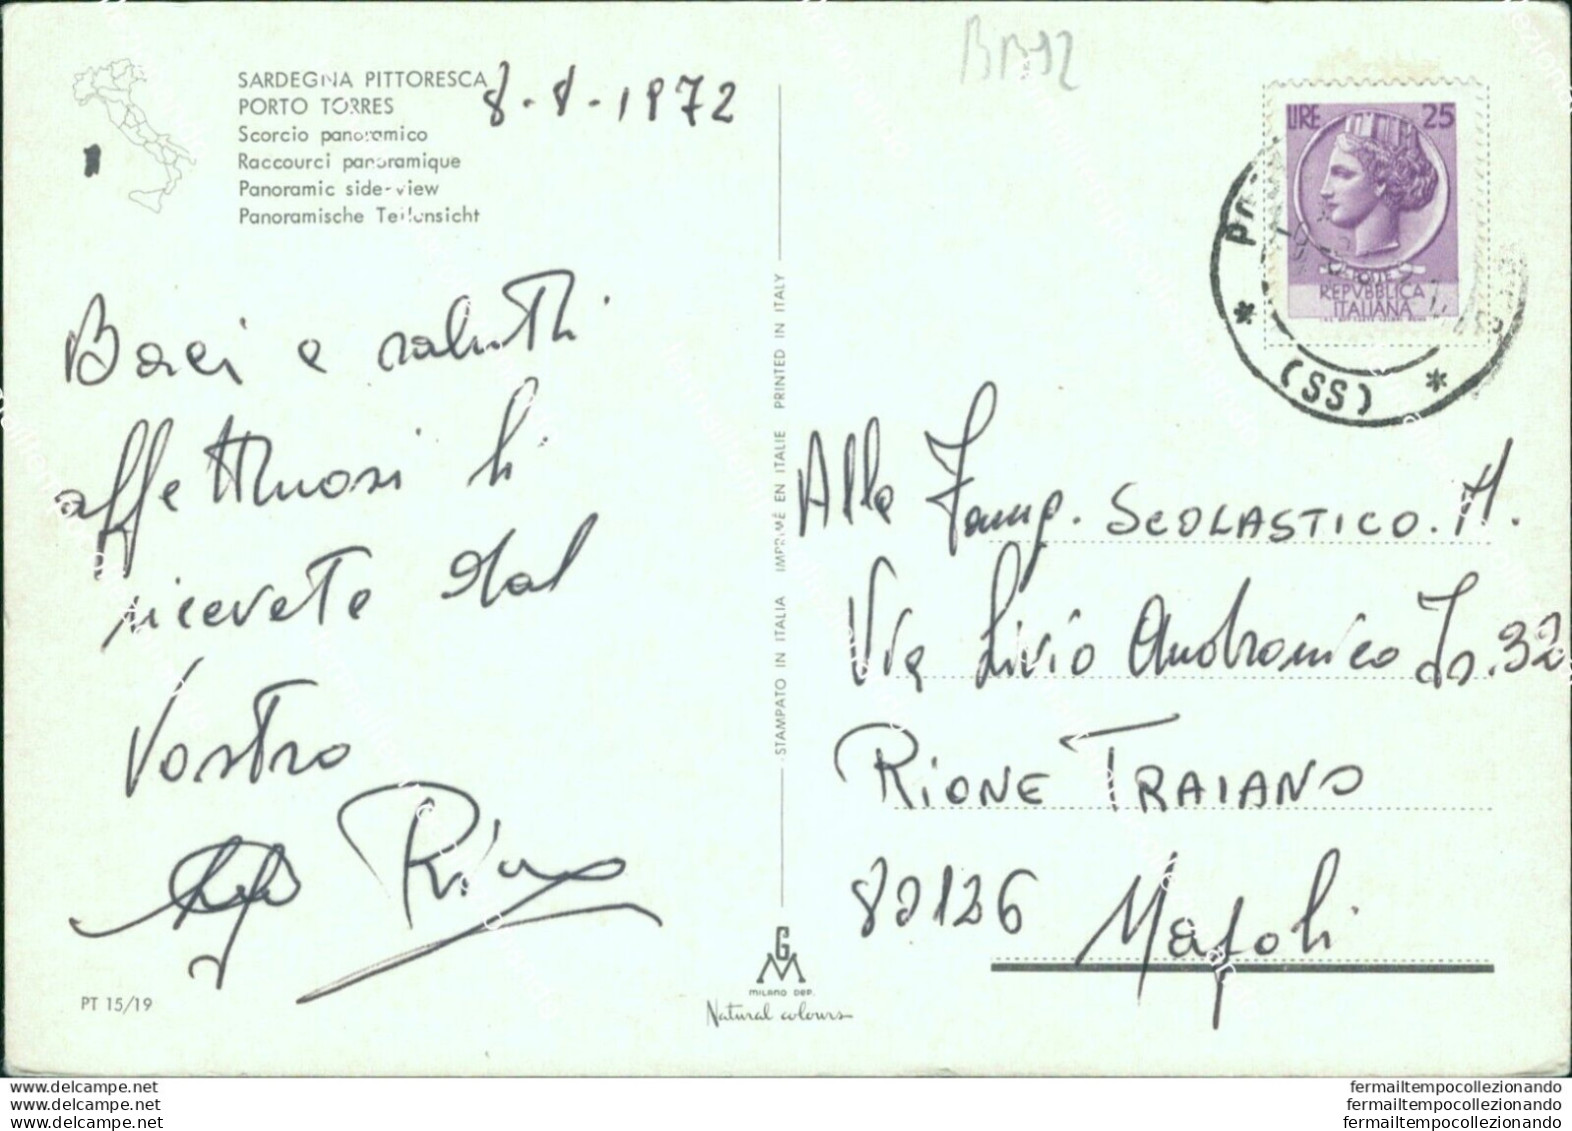 BB92
SARDEGNA PITTORESCA
PORTO TORRES
Scorcio panoramico
Raccourci panoramique
Panoramic side-view
Panoramische Teilansicht
8-8-1972
Baci e saluti
affettuosi li
ricevete dal
Vostro
Rino
PT 15/19
STAMPATO IN ITALIA IMPRIMÉ EN ITALIE PRINTED IN ITALY
G
M
MILANO DEP.
Natural colours
LIRE 25
POSTE
REPVBBLICA
ITALIANA
(SS)
Alla Famp. SCOLASTICO. M.
Via Livio Andronico Is. 32
RIONE TRAIANO
80126 Napoli
delcampe.net
delcampe.net
delcampe.net
fermailtempocollezionando
fermailtempocollezionando
fermailtempocollezionando